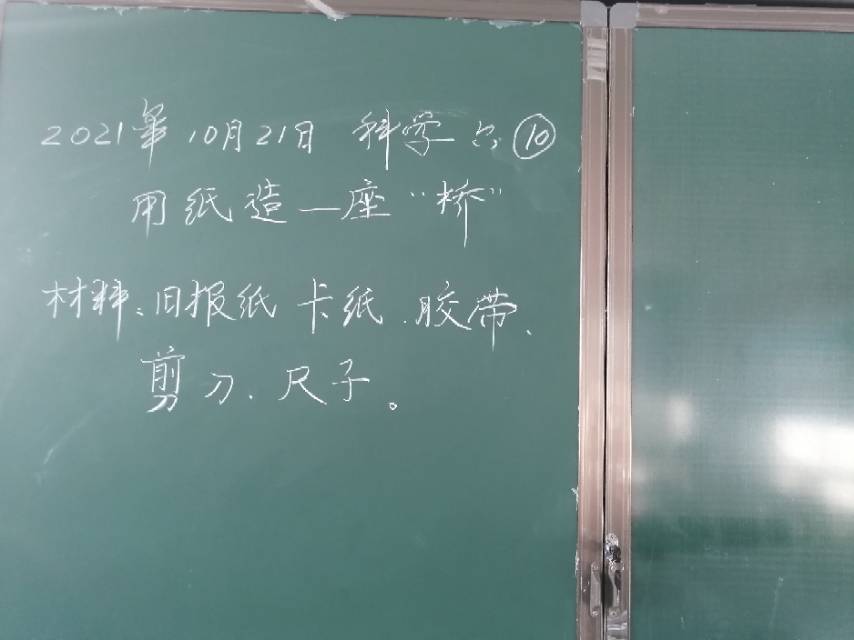 2021年10月21日 科学 六⑩
用纸造一座“桥”
材料:旧报纸 卡纸、胶带、
剪刀、尺子。